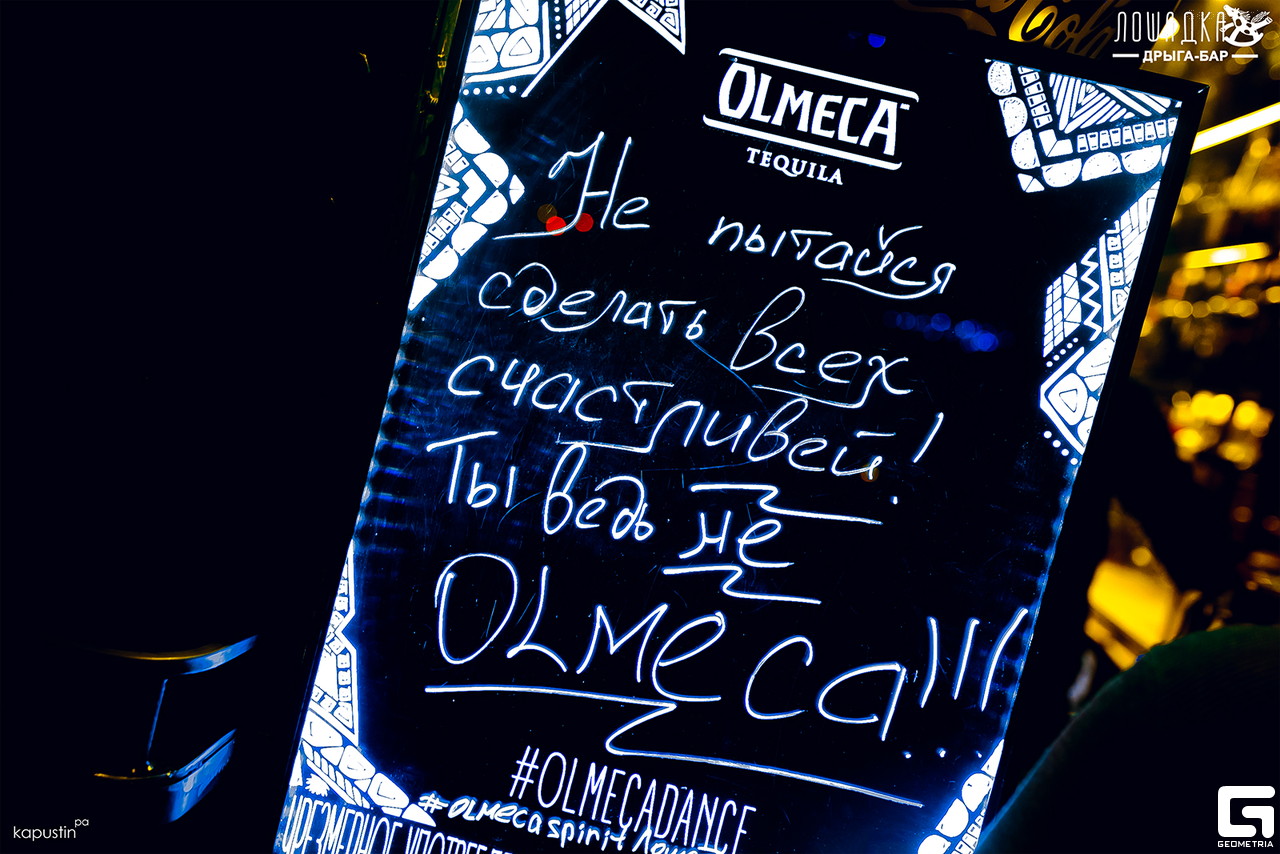 ЛОШАДКА
ДРЫГА-БАР
OLMECA
TEQUILA
Не пытайся
сделать всех
счастливей!
Ты ведь не
OLMeca!!!
#OLMECADANCE
#OLMECAspirit
ЧРЕЗМЕРНОЕ
kapustin pa
GEOMETRIA